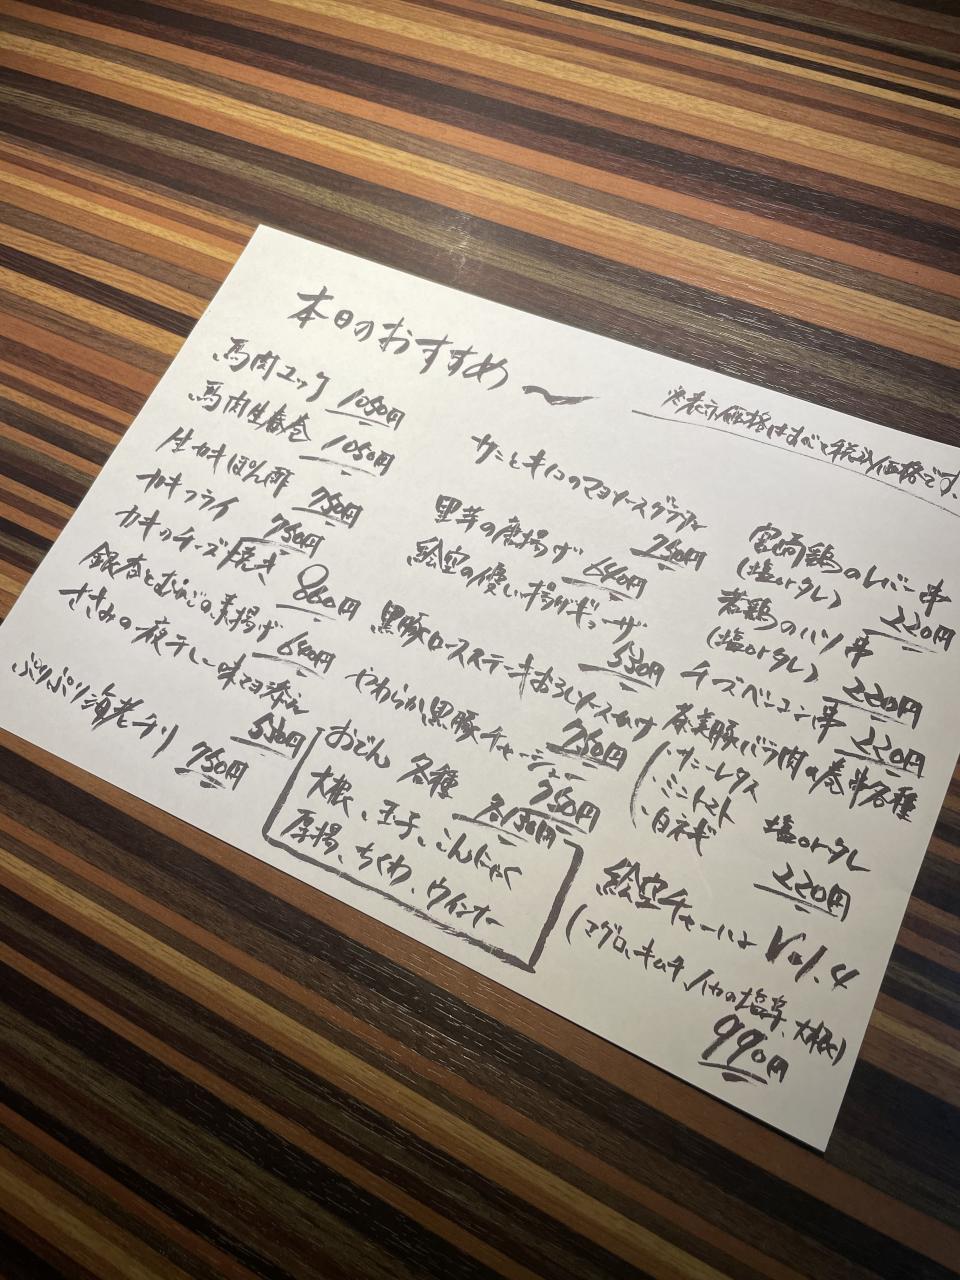 本日のおすすめ〜
※表示価格はすべて税込価格です。
馬肉ユッケ 1080円
馬肉生春巻 1080円
生カキぽん酢 780円
カキフライ 780円
カキのチーズ焼き 860円
銀杏とむかごの素揚げ 640円
ささみの一夜干し 一味マヨ添え 530円
ぷりぷり海老チリ 750円
カニとキノコのマヨソースグラタン 750円
里芋の唐揚げ 640円
絵空の優しい揚げギョーザ 530円
黒豚ロースステーキおろしソースかけ 750円
やわらか黒豚チャーシュー 750円
おでん 各種 各150円
大根、玉子、こんにゃく
厚揚、ちくわ、ウインナー
宮崎鶏のレバー串
(塩orタレ) 220円
若鶏のハツ串
(塩orタレ) 220円
チーズベーコン串 220円
奄美豚バラ肉の巻串各種
(サニーレタス
ミニトマト 塩orタレ
白ネギ 220円
絵空チャーハン Vol.4
(マグロ、キムチ、イカの塩辛、大根)
990円